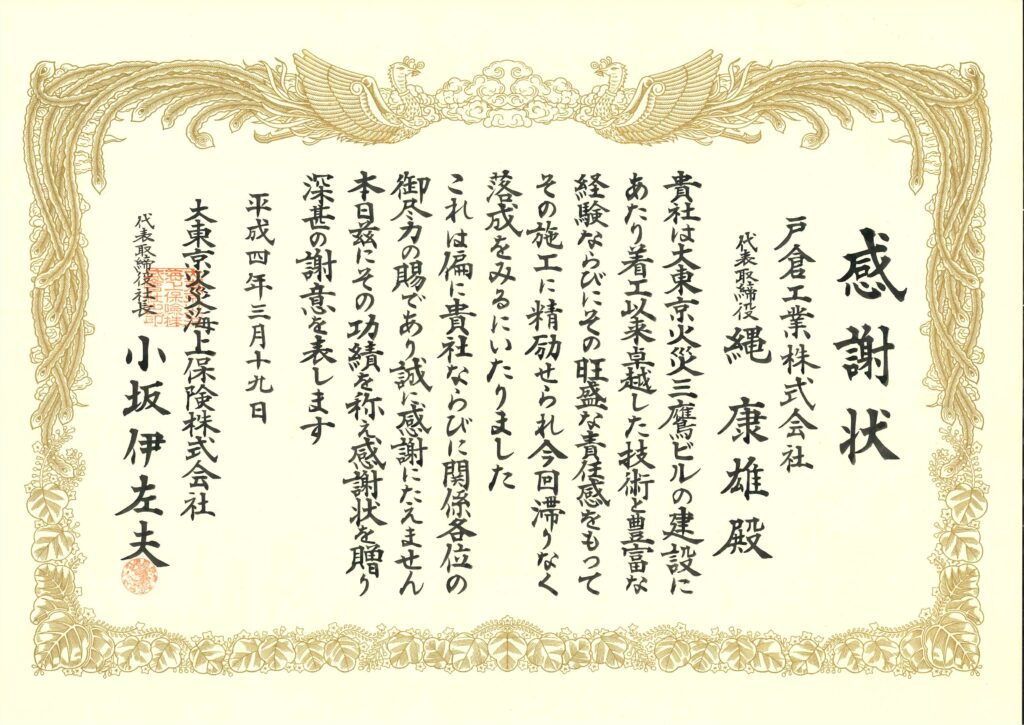 感謝状
戸倉工業株式会社
代表取締役 縄 康雄殿
貴社は大東京火災三鷹ビルの建設に
あたり着工以来卓越した技術と豊富な
経験ならびにその旺盛な責任感をもって
その施工に精励せられ今回滞りなく
落成をみるにいたりました
これは偏に貴社ならびに関係各位の
御尽力の賜であり誠に感謝にたえません
本日茲にその功績を称え感謝状を贈り
深甚の謝意を表します
平成四年三月十九日
大東京火災海上保険株式会社
代表取締役社長 小坂伊左夫